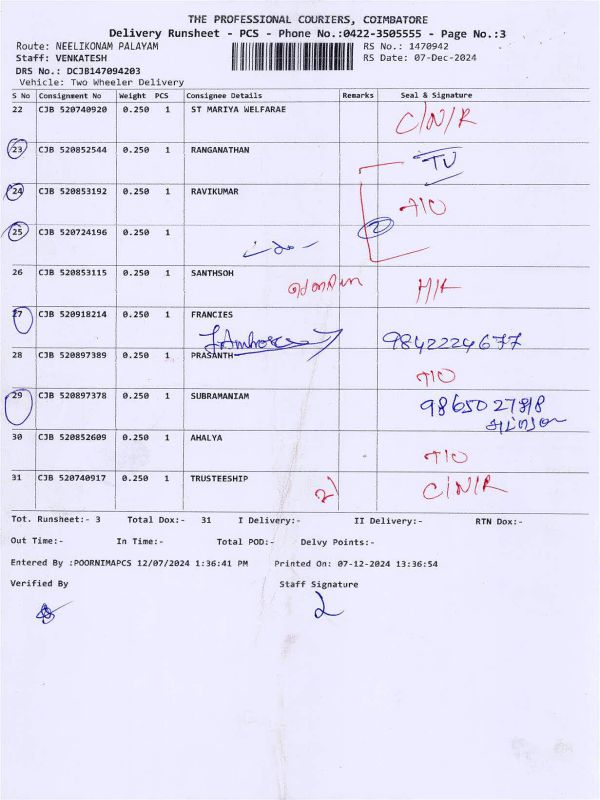 THE PROFESSIONAL COURIERS, COIMBATORE
Delivery Runsheet - PCS - Phone No.:0422-3505555 - Page No.:3
Route: NEELIKONAM PALAYAM RS No.: 1470942
Staff: VENKATESH RS Date: 07-Dec-2024
DRS No.: DCJB147094203
Vehicle: Two Wheeler Delivery
S No Consignment No Weight PCS Consignee Details Remarks Seal & Signature
22 CJB 520740920 0.250 1 ST MARIYA WELFARAE C/N/R
23 CJB 520852544 0.250 1 RANGANATHAN
24 CJB 520853192 0.250 1 RAVIKUMAR
25 CJB 520724196 0.250 1 2
26 CJB 520853115 0.250 1 SANTHSOH
27 CJB 520918214 0.250 1 FRANCIES
9842224677
28 CJB 520897389 0.250 1 PRASANTH
29 CJB 520897378 0.250 1 SUBRAMANIAM
30 CJB 520852609 0.250 1 AHALYA
31 CJB 520740917 0.250 1 TRUSTEESHIP C/N/R
Tot. Runsheet:- 3 Total Dox:- 31 I Delivery:- II Delivery:- RTN Dox:-
Out Time:- In Time:- Total POD:- Delvy Points:-
Entered By :POORNIMAPCS 12/07/2024 1:36:41 PM Printed On: 07-12-2024 13:36:54
Verified By Staff Signature